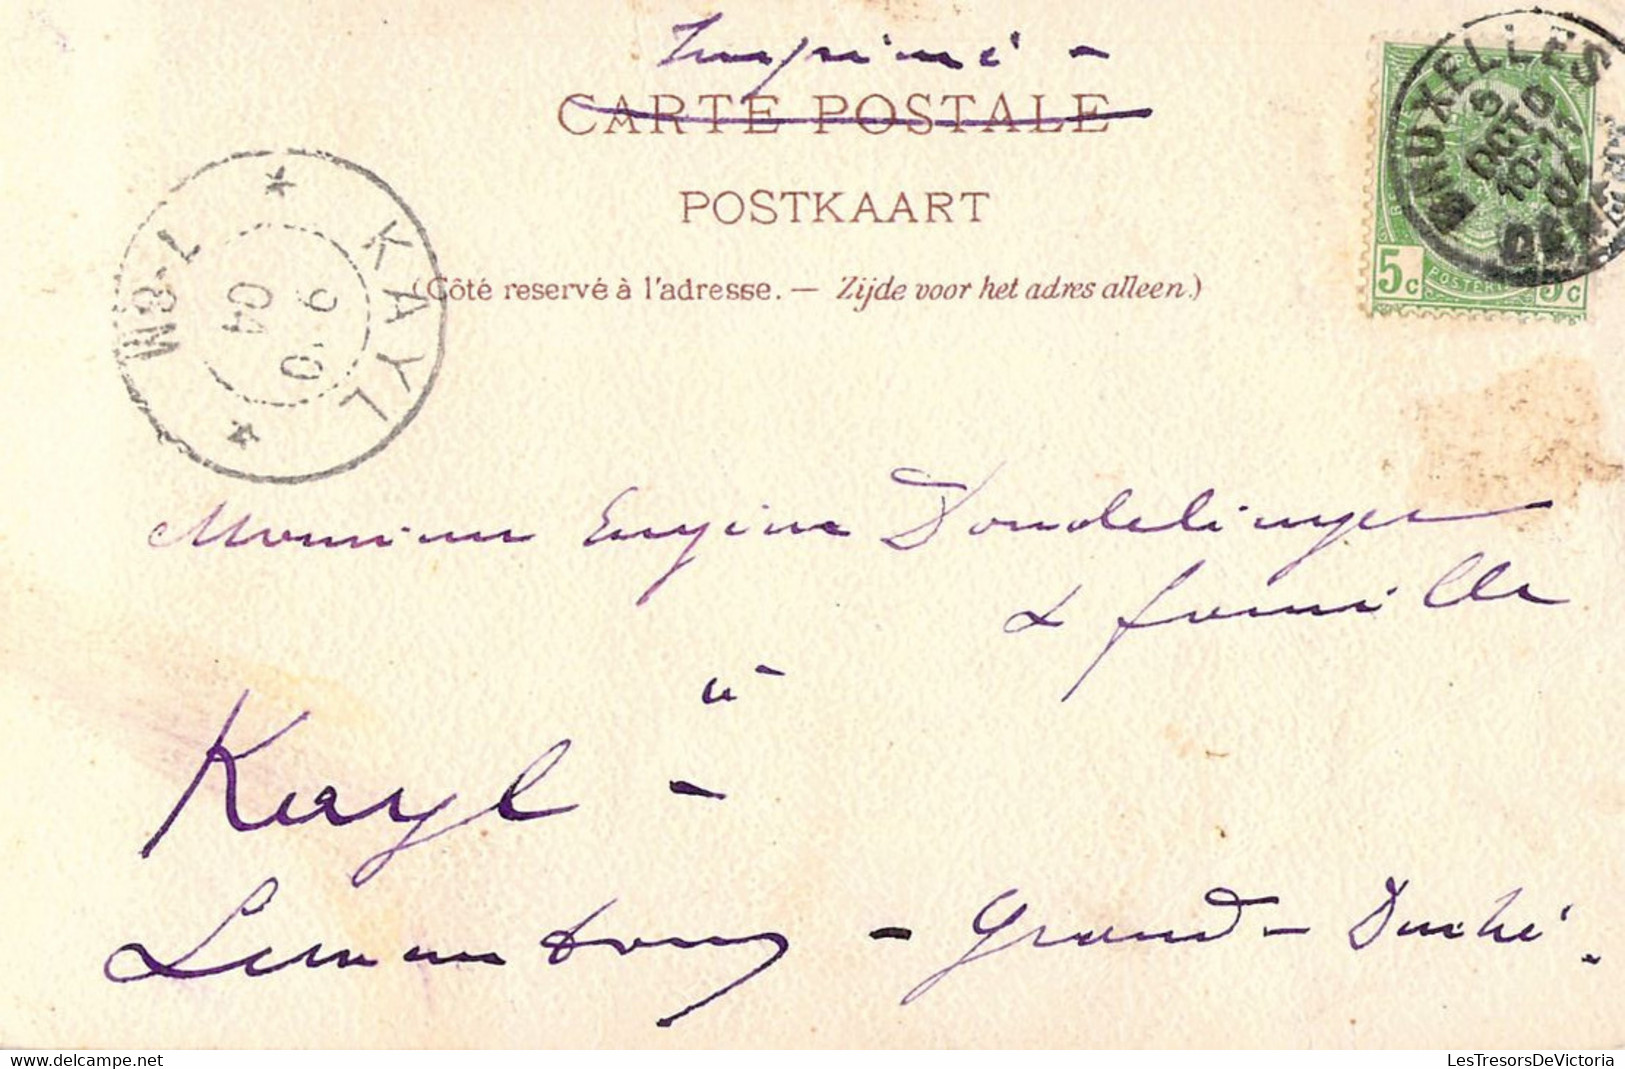 Imprimé -
CARTE POSTALE
POSTKAART
(Côté reservé à l'adresse. — Zijde voor het adres alleen.)
BRUXELLES
9 OCTO
10-11
04
5c 5c
KAYL
9 0
04
7-8M
Monsieur Eugène Dondelinger
& famille
à
Kayl -
Luxembourg - Grand-Duché.
www.delcampe.net
LesTresorsDeVictoria